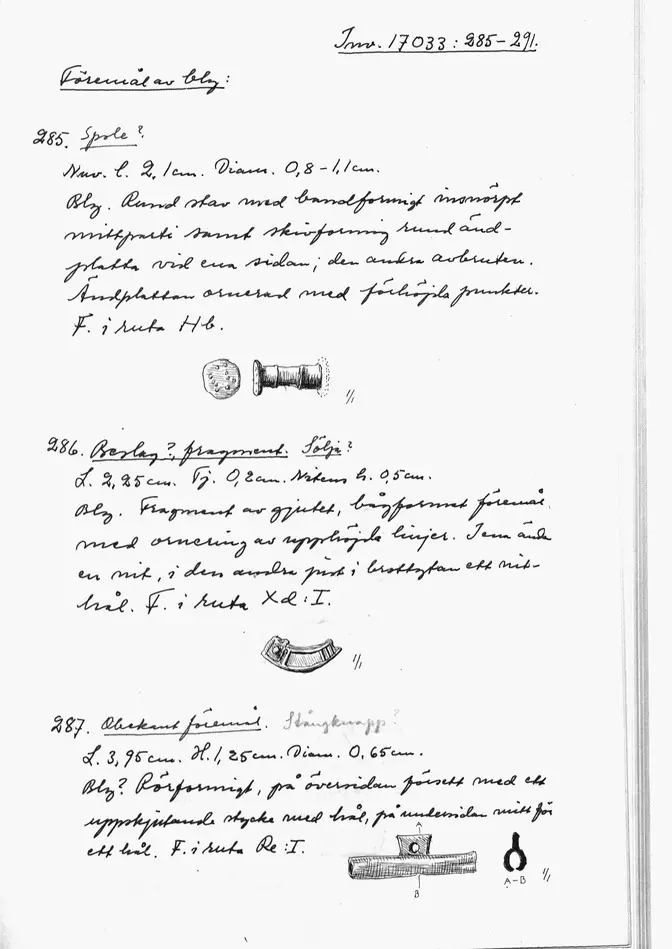 Inv. 17033: 285-291.
Föremål av bly:
285. Spole?
Nuv. l. 2,1cm. Diam. 0,8-1,1cm.
Bly. Rund stav med bandformigt insnörpt
mittparti samt skivformig rund änd-
platta vid ena sidan; den andra avbruten.
Ändplattan ornerad med förhöjda punkter.
F. i ruta Hb.
1/1
286. Beslag?, fragment. Sölja?
L. 2,25cm. Tj. 0,2cm. Nitens h. 0,5cm.
Bly. Fragment av gjutet, bågformat föremål
med ornering av upphöjda linjer. I ena ända
en nit, i den andra just i brottytan ett nit-
hål. F. i ruta Xd:I.
1/1
287. Obekant föremål. Stångknapp?
L. 3,95cm. H. 1,25cm. Diam. 0,65cm.
Bly? Rörformigt, på översidan försett med ett
uppskjutande stycke med hål, på undersidan mitt för
ett hål. F. i ruta Re:I.
A
B
A-B
1/1